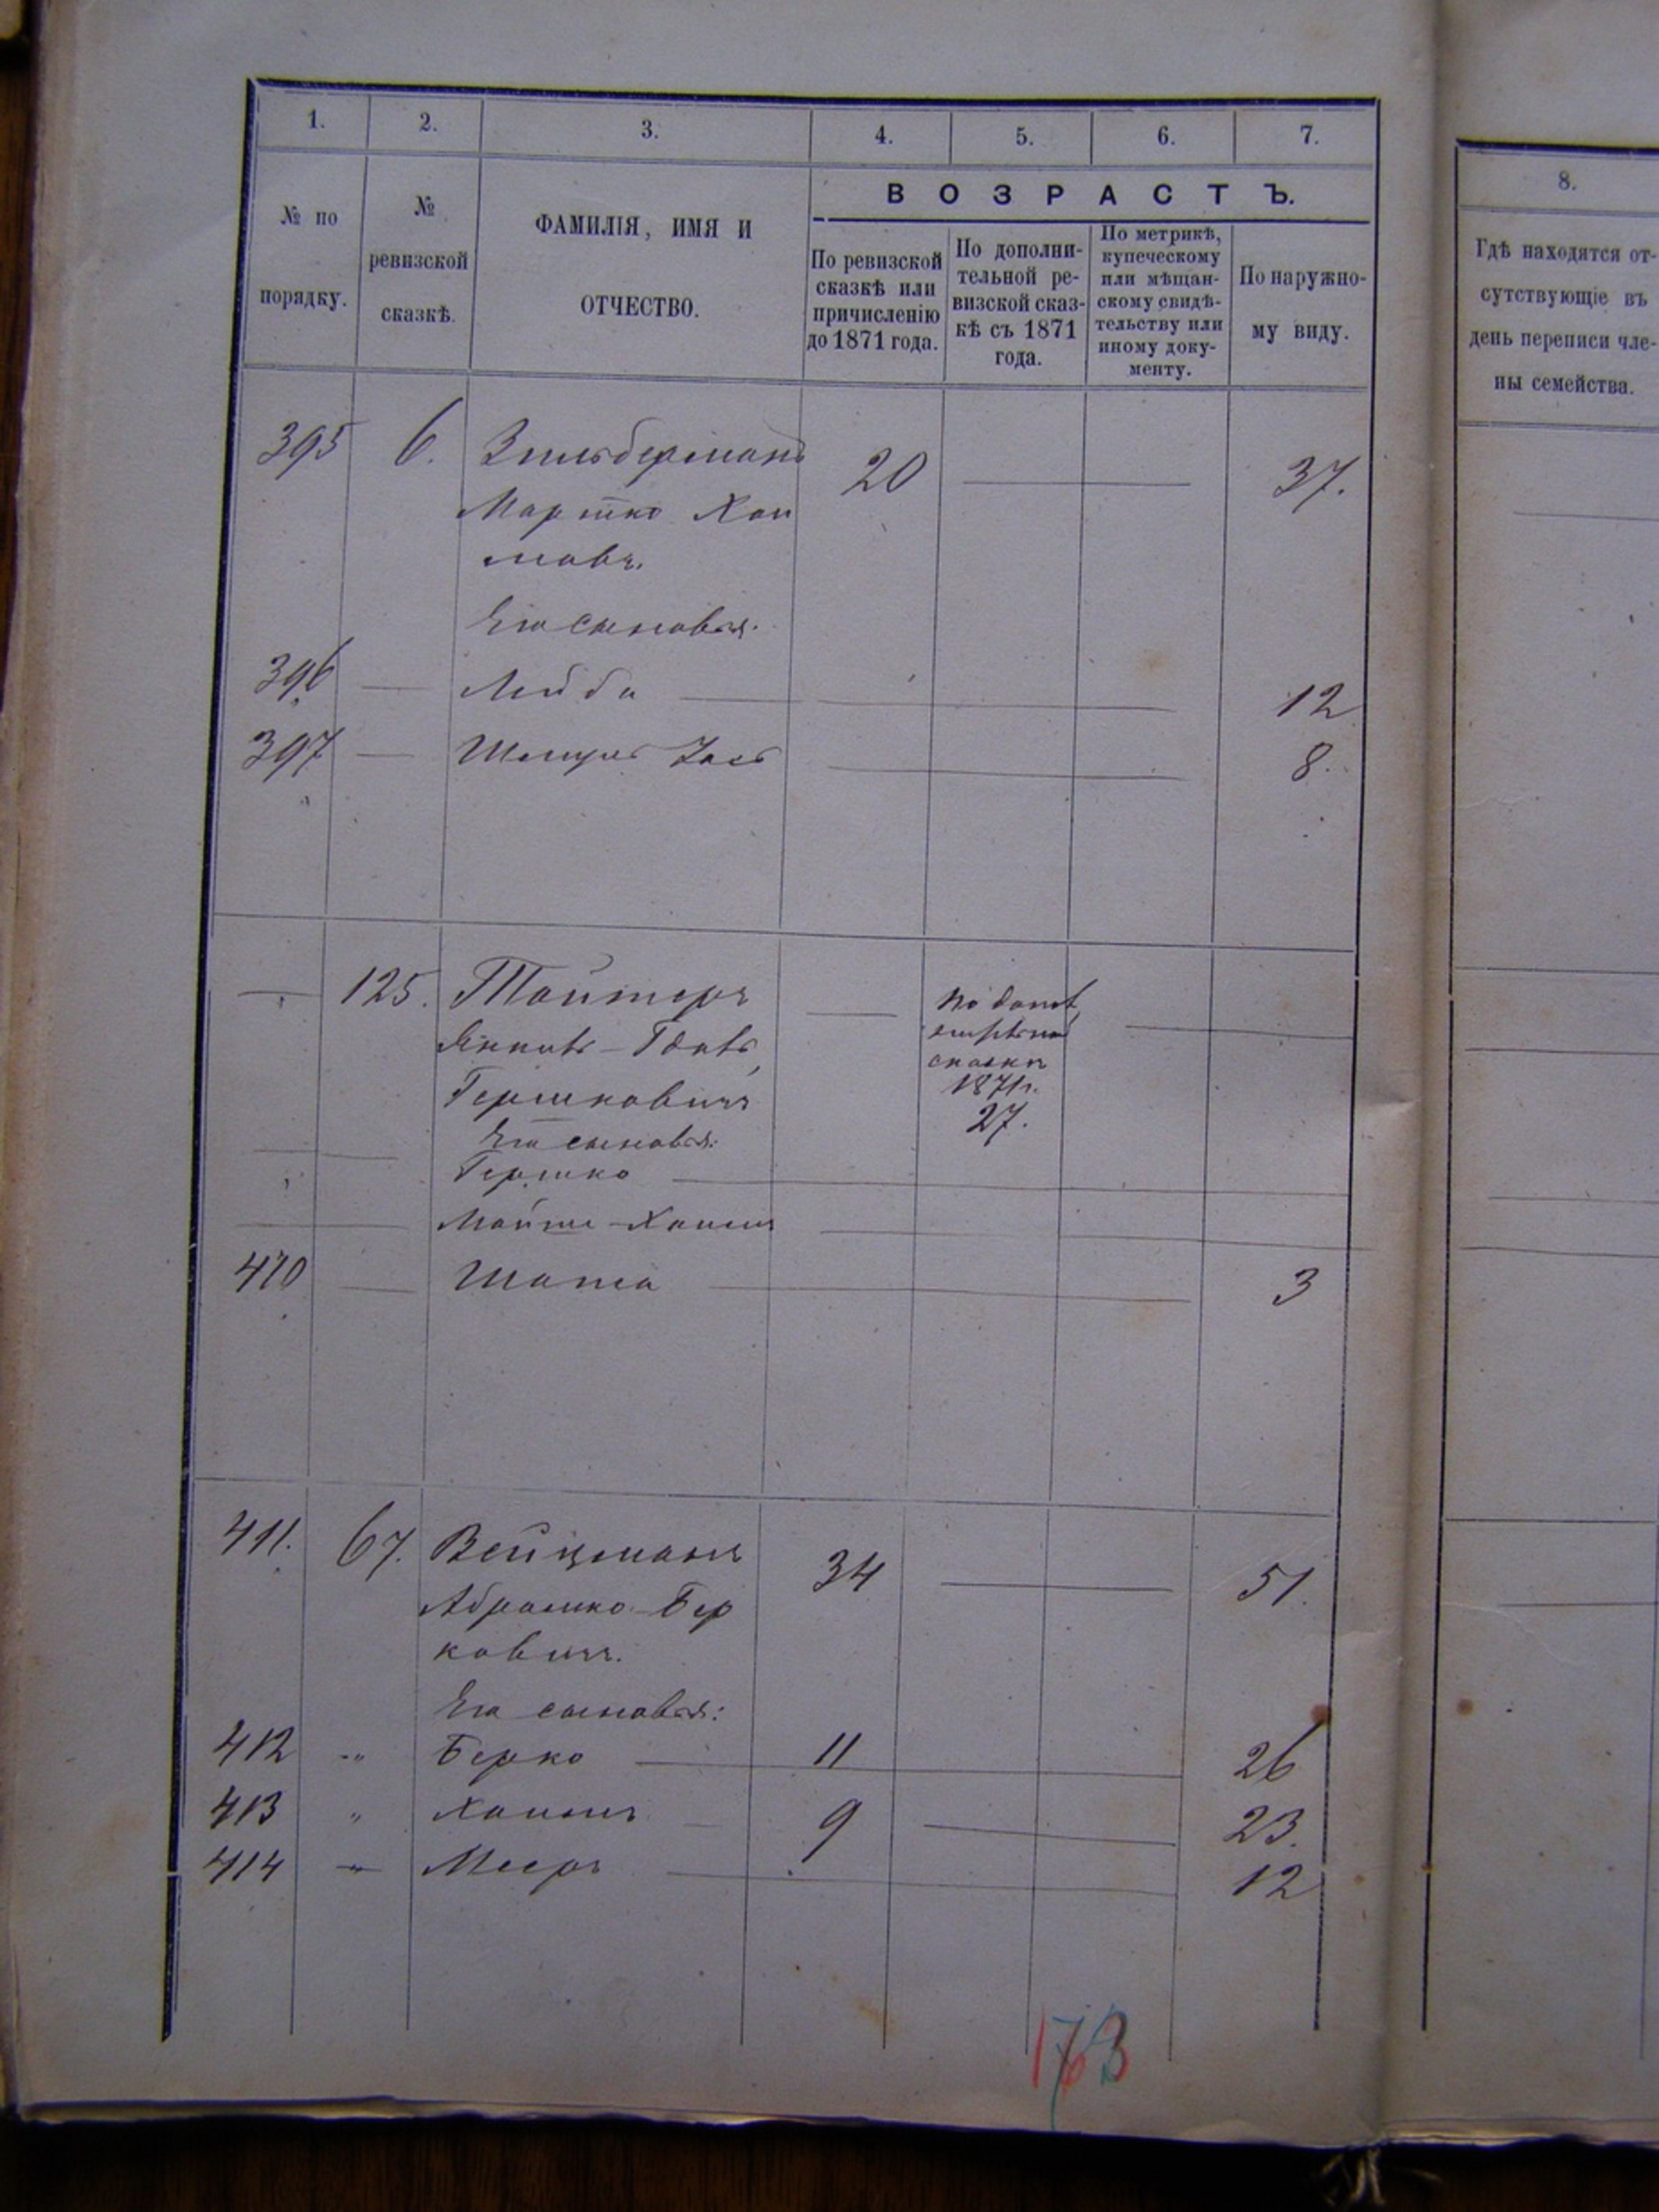 1. 2. 3. 4. 5. 6. 7.
ВОЗРАСТЪ.
№ по порядку.
№ ревизской сказкѣ.
ФАМИЛІЯ, ИМЯ И ОТЧЕСТВО.
По ревизской сказкѣ или причисленію до 1871 года.
По дополнительной ревизской сказкѣ съ 1871 года.
По метрикѣ, купеческому или мѣщанскому свидѣтельству или иному документу.
По наружному виду.
8.
Гдѣ находятся от-
сутствующіе въ
день переписи чле-
ны семейства.
395 6. Зильберманъ 20 37.
Мартко Хаи
мовъ.
Его сыновья.
396 Лейба 12
397 8.
125. Тайтеръ
Гершковичъ 1871г.
Его сыновья: 27.
Гершко
Хаимъ
410 3
411. 67. Вейцманъ 34 51.
Абрамко Бер
ковичъ.
Его сыновья:
412 " Берко 11 26
413 " Хаимъ 9 23.
414 " Мееръ 12
173